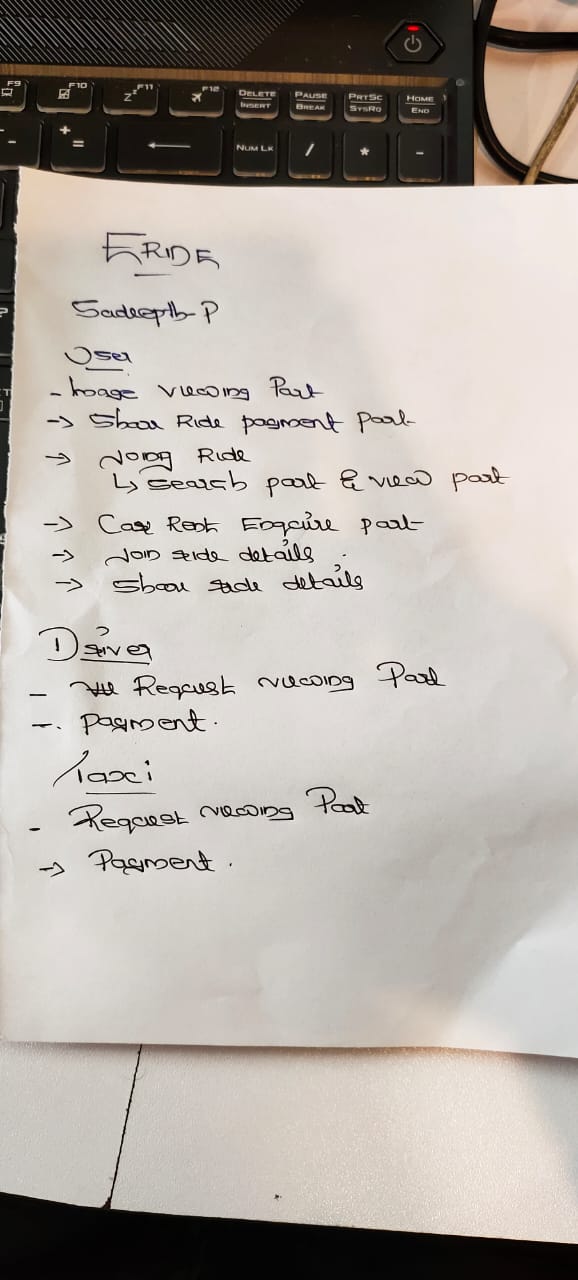 F9
F10
F11
F12
DELETE
INSERT
PAUSE
BREAK
PRTSC
SYSRQ
HOME
END
-
+
=
NUM LK
/
*
-
ERIDE
Sadeepth-P
User
- Image viewing Part
-> Share Ride payment part
-> Joing Ride
↳ search part & view part
-> Car Rent Enquire part
-> Join ride details.
-> Share ride details
Driver
- Request viewing Part
-. payment.
Taxi
- Request viewing Part
-> Payment.